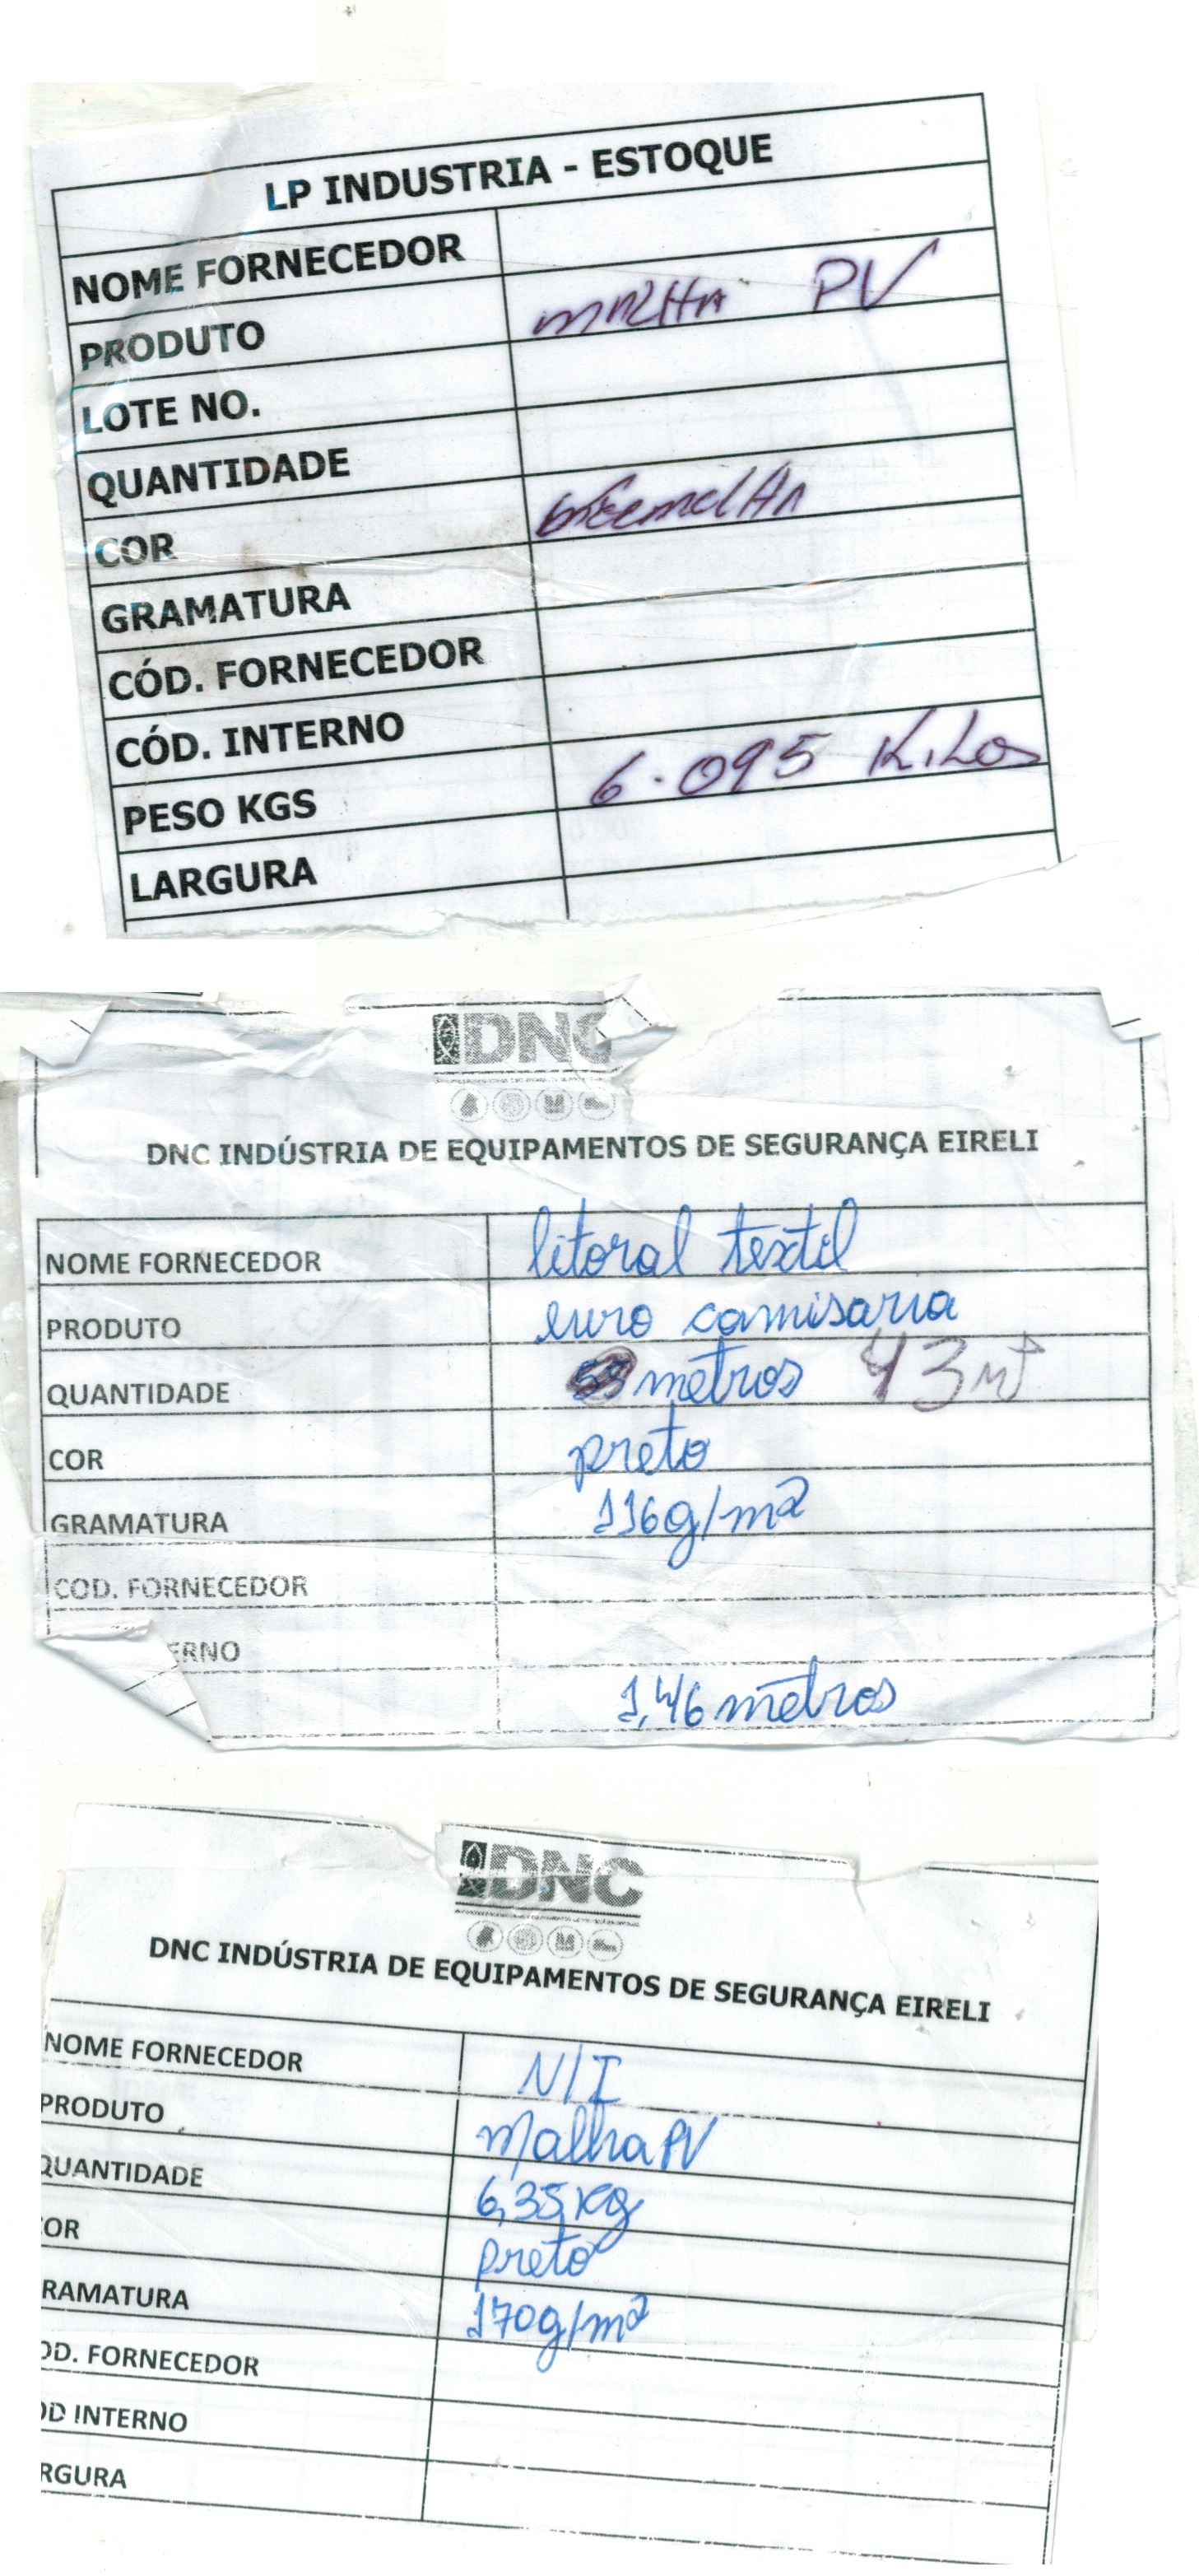 LP INDUSTRIA - ESTOQUE
NOME FORNECEDOR
PRODUTO MALHA PV
LOTE NO.
QUANTIDADE
COR VERMELHA
GRAMATURA
CÓD. FORNECEDOR
CÓD. INTERNO
PESO KGS 6.095 KILOS
LARGURA
DNC
DNC INDÚSTRIA DE EQUIPAMENTOS DE SEGURANÇA EIRELI
NOME FORNECEDOR litoral textil
PRODUTO euro camisaria
QUANTIDADE metros 43 mt
COR preto
GRAMATURA 116g/m²
COD. FORNECEDOR
ERNO
1,46 metros
DNC
DNC INDÚSTRIA DE EQUIPAMENTOS DE SEGURANÇA EIRELI
NOME FORNECEDOR N/I
PRODUTO Malha PV
QUANTIDADE 6,35 kg
OR preto
RAMATURA 170g/m²
OD. FORNECEDOR
OD INTERNO
RGURA